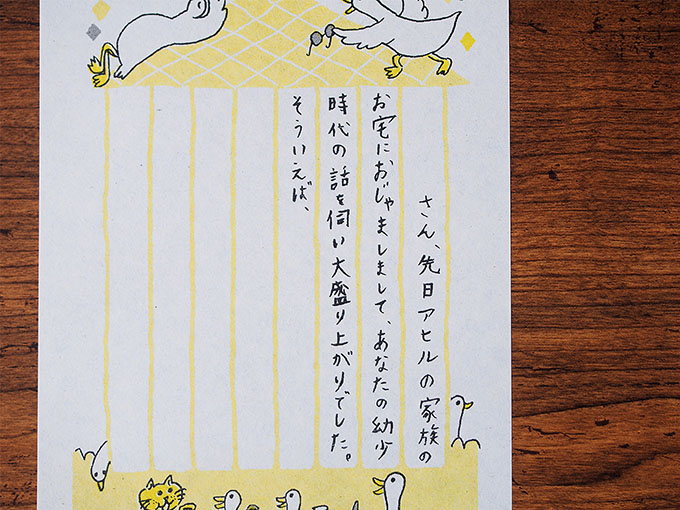 さん、先日アヒルの家族の
お宅におじゃましまして、あなたの幼少
時代の話を伺い大盛り上がりでした。
そういえば、